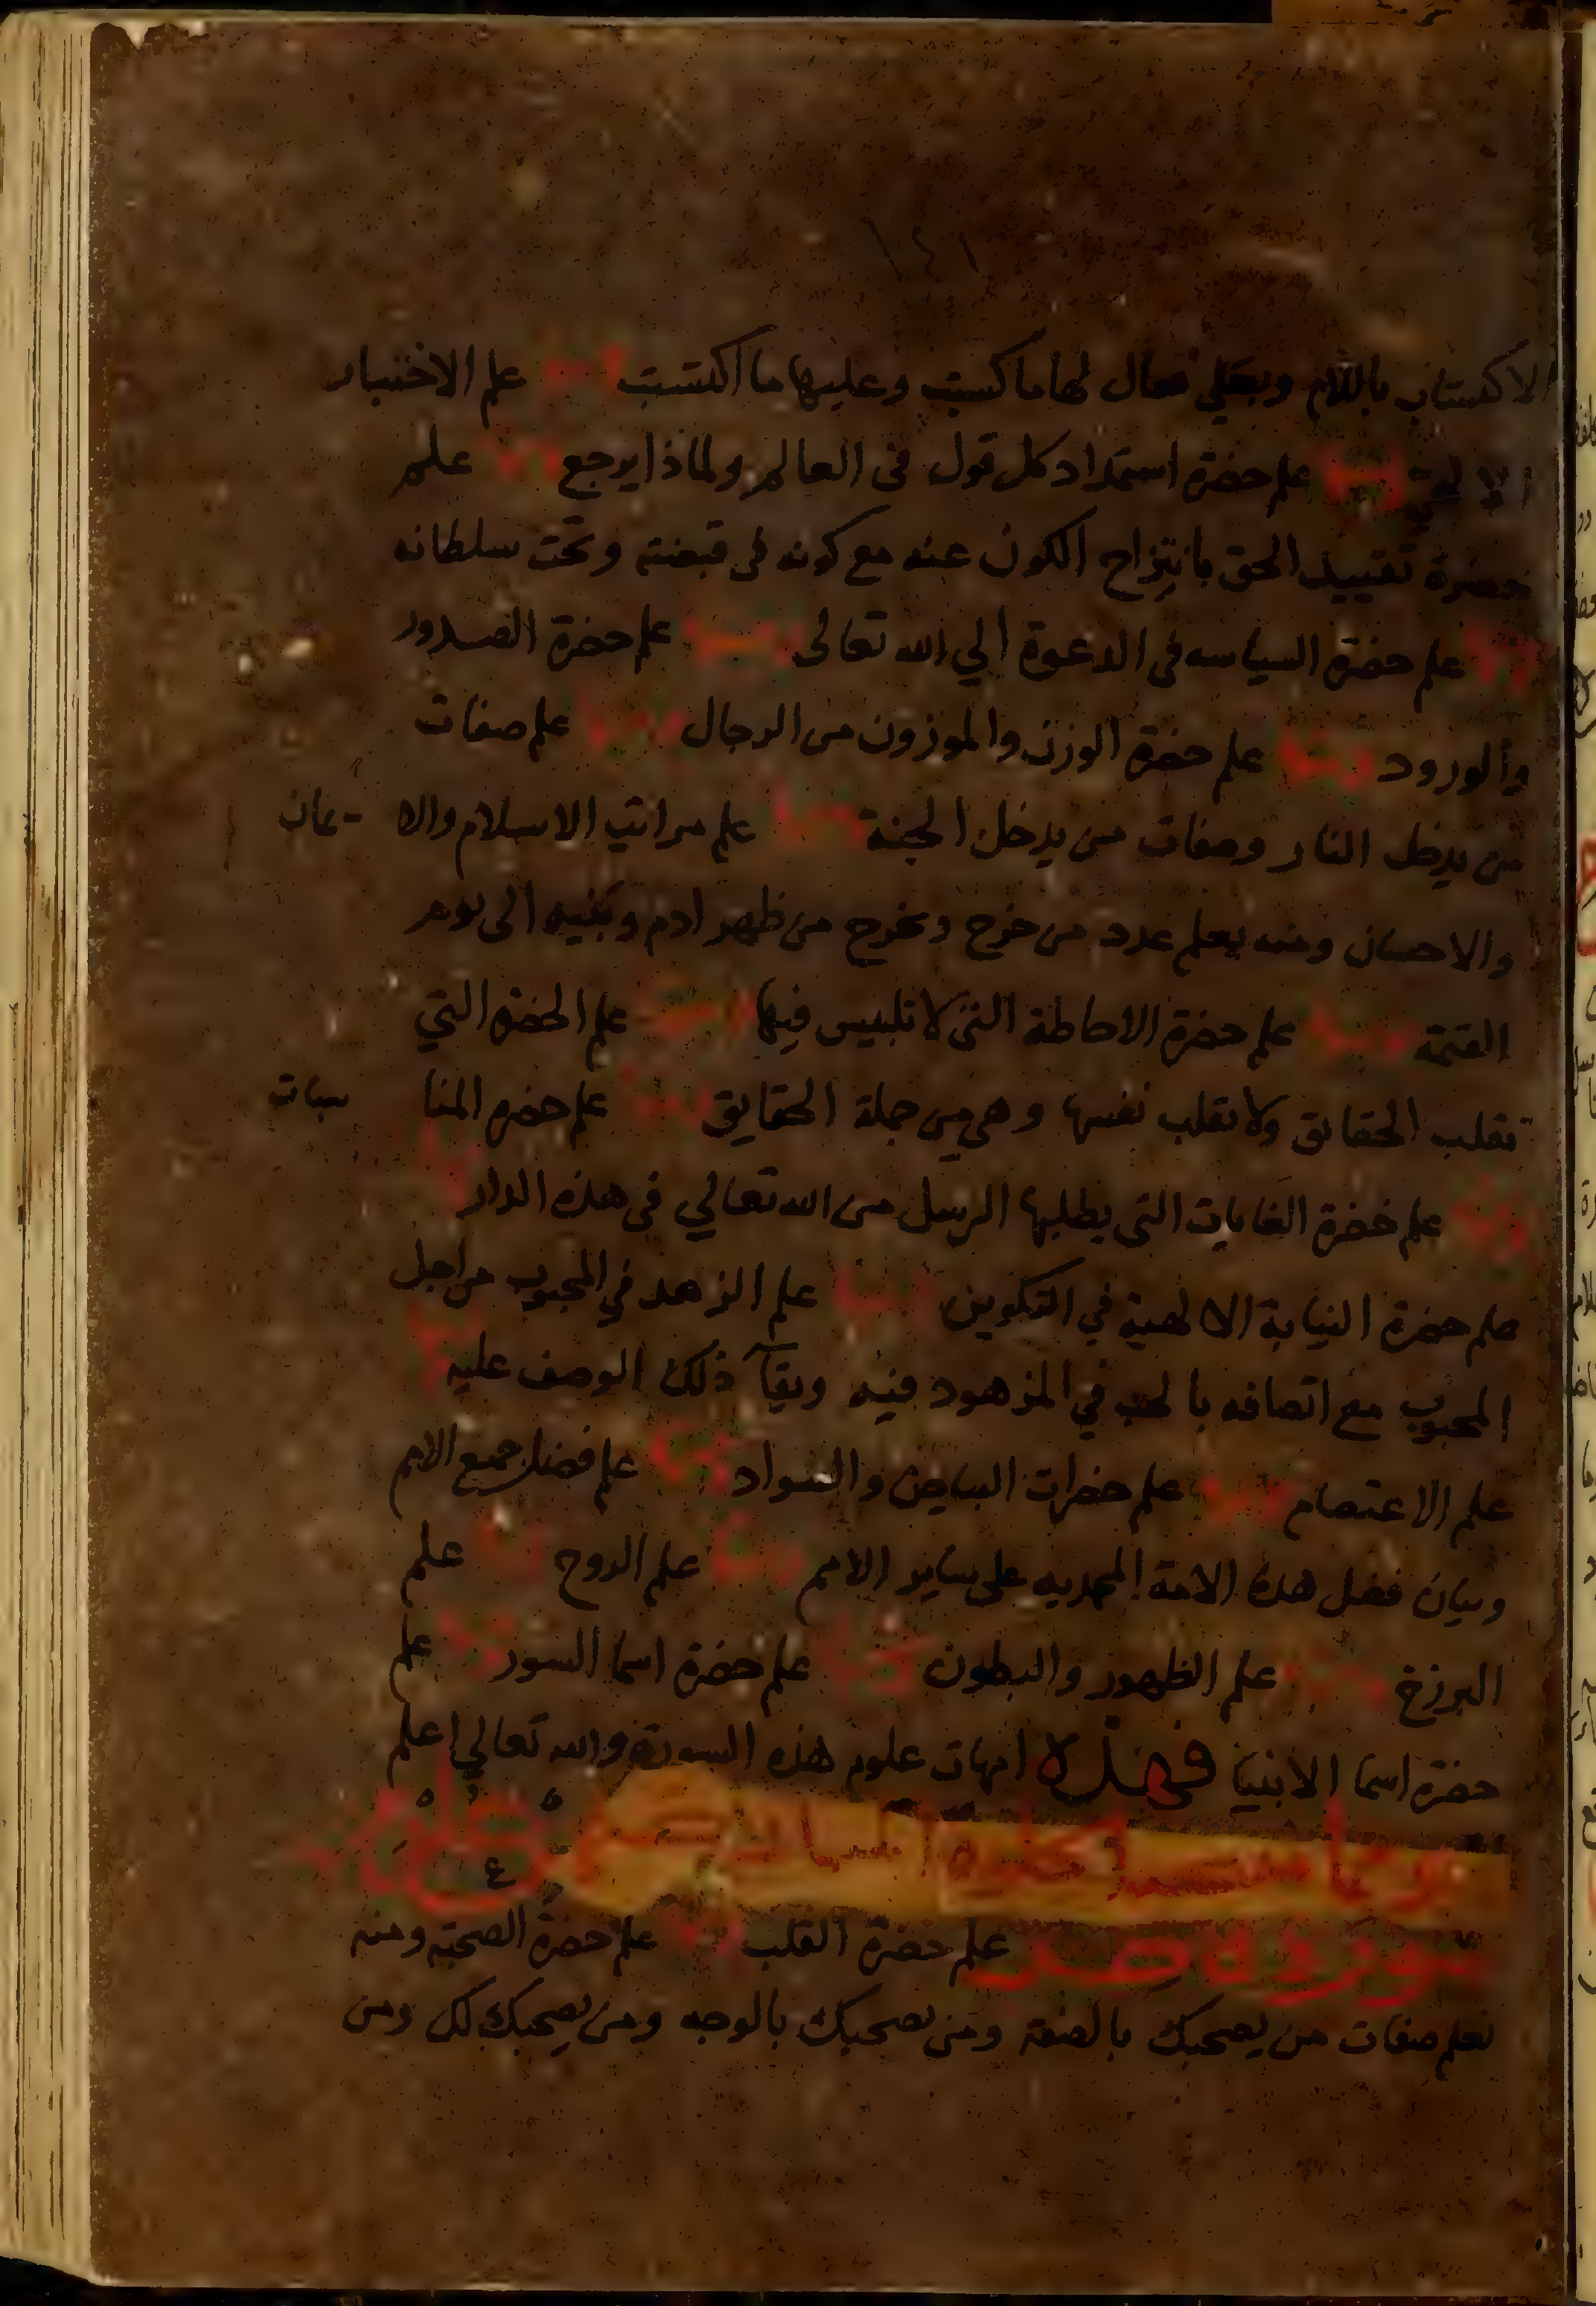 الاكتساب باللام وبعلي فقال لها ما كسبت وعليها ما اكتسبت علم الاختبار
الالهي علم حضرة استمداد كل قول فى العالم ولماذا يرجع علم
حضرة تقييد الحق بانتزاح الكون عنه مع كونه فى قبضته وتحت سلطانه
علم حضرة السياسه فى الدعوة الي الله تعالى علم حضرة الصدور
والورود علم حضرة الوزن والموزون من الرجال علم صفات
من يدخل النار وصفات من يدخل الجنة علم مراتب الاسلام والا يمان
والاحسان ومنه يعلم عدد من خرج ويخرج من ظهر ادم وبنيه الى يوم
القيمة علم حضرة الاحاطة التى لا تلبيس فيها علم الحضرة التي
تقلب الحقائق ولا تقلب نفسها وهي من جملة الحقايق علم حضرة المنا سبات
علم حضرة الغايات التى يطلبها الرسل من الله تعالي فى هذه الدار
علم حضرة النيابة الالهية في التكوين علم الزهد في المحبوب من اجل
المحبوب مع اتصافه بالحب في المزهود فيه وبقآ ذلك الوصف عليه
علم الاعتصام علم حضرات البياض والسواد علم فضل جميع الامم
وبيان فضل هذه الامة المحمديه على سائر الامم علم الروح علم
البرزخ علم الظهور والبطون علم حضرة اسما السور علم
حضرة اسما الانبيا فهذه امهات علوم هذه السورة والله تعالي اعلم
سورة ص علم حضرة القلب علم حضرة الصحبة ومنه
تعلم صفات من يصحبك بالصفة ومن يصحبك بالوجه ومن يصحبك لك ومن